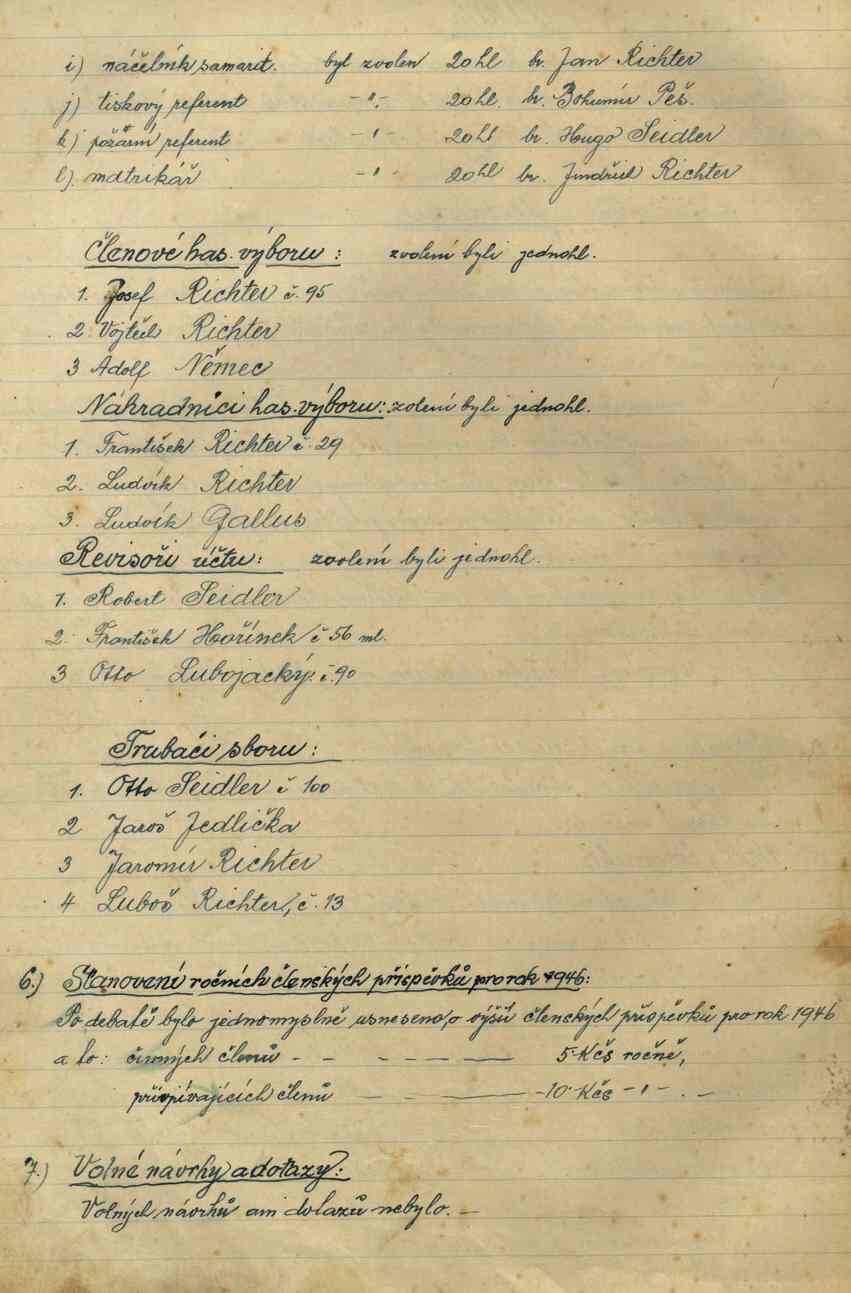 i) náčelník samarit. byl zvolen 20 hl br. Jan Richter
j) tiskový referent -"- 20 hl. br. Bohumír Peš.
k) požární referent -"- 20 hl br. Hugo Seidler
l). matrikář -"- 20 hl br. Jindřich Richter
Členové has. výboru: zvolení byli jednohl.
1. Josef Richter č. 95
2. Vojtěch Richter
3 Adolf Němec
Náhradníci has. výboru: zolení byli jednohl.
1. František Richter č. 29
2. Ludvík Richter
3. Ludvík Gallus
Revisoři účtu: zvolení byli jednohl.
1. Robert Seidler
2. František Hořínek č 56 ml.
3 Otto Lubojacký č. 90
Trubači sboru:
1. Otto Seidler č 100
2 Jaroš Jedlička
3 Jaromír Richter
4 Luboš Richter, č. 13
6.) Stanovení ročních členských příspěvků pro rok 1946:
Po debatě bylo jednomyslně usneseno, o výši členských příspěvků pro rok 1946
a to: činných členů - - - - - — 5 Kčs ročně,
přispívajících členů — - — 10 Kčs -"- . -
7.) Volné návrhy a dotazy:
Volných návrhů ani dotazů nebylo. —